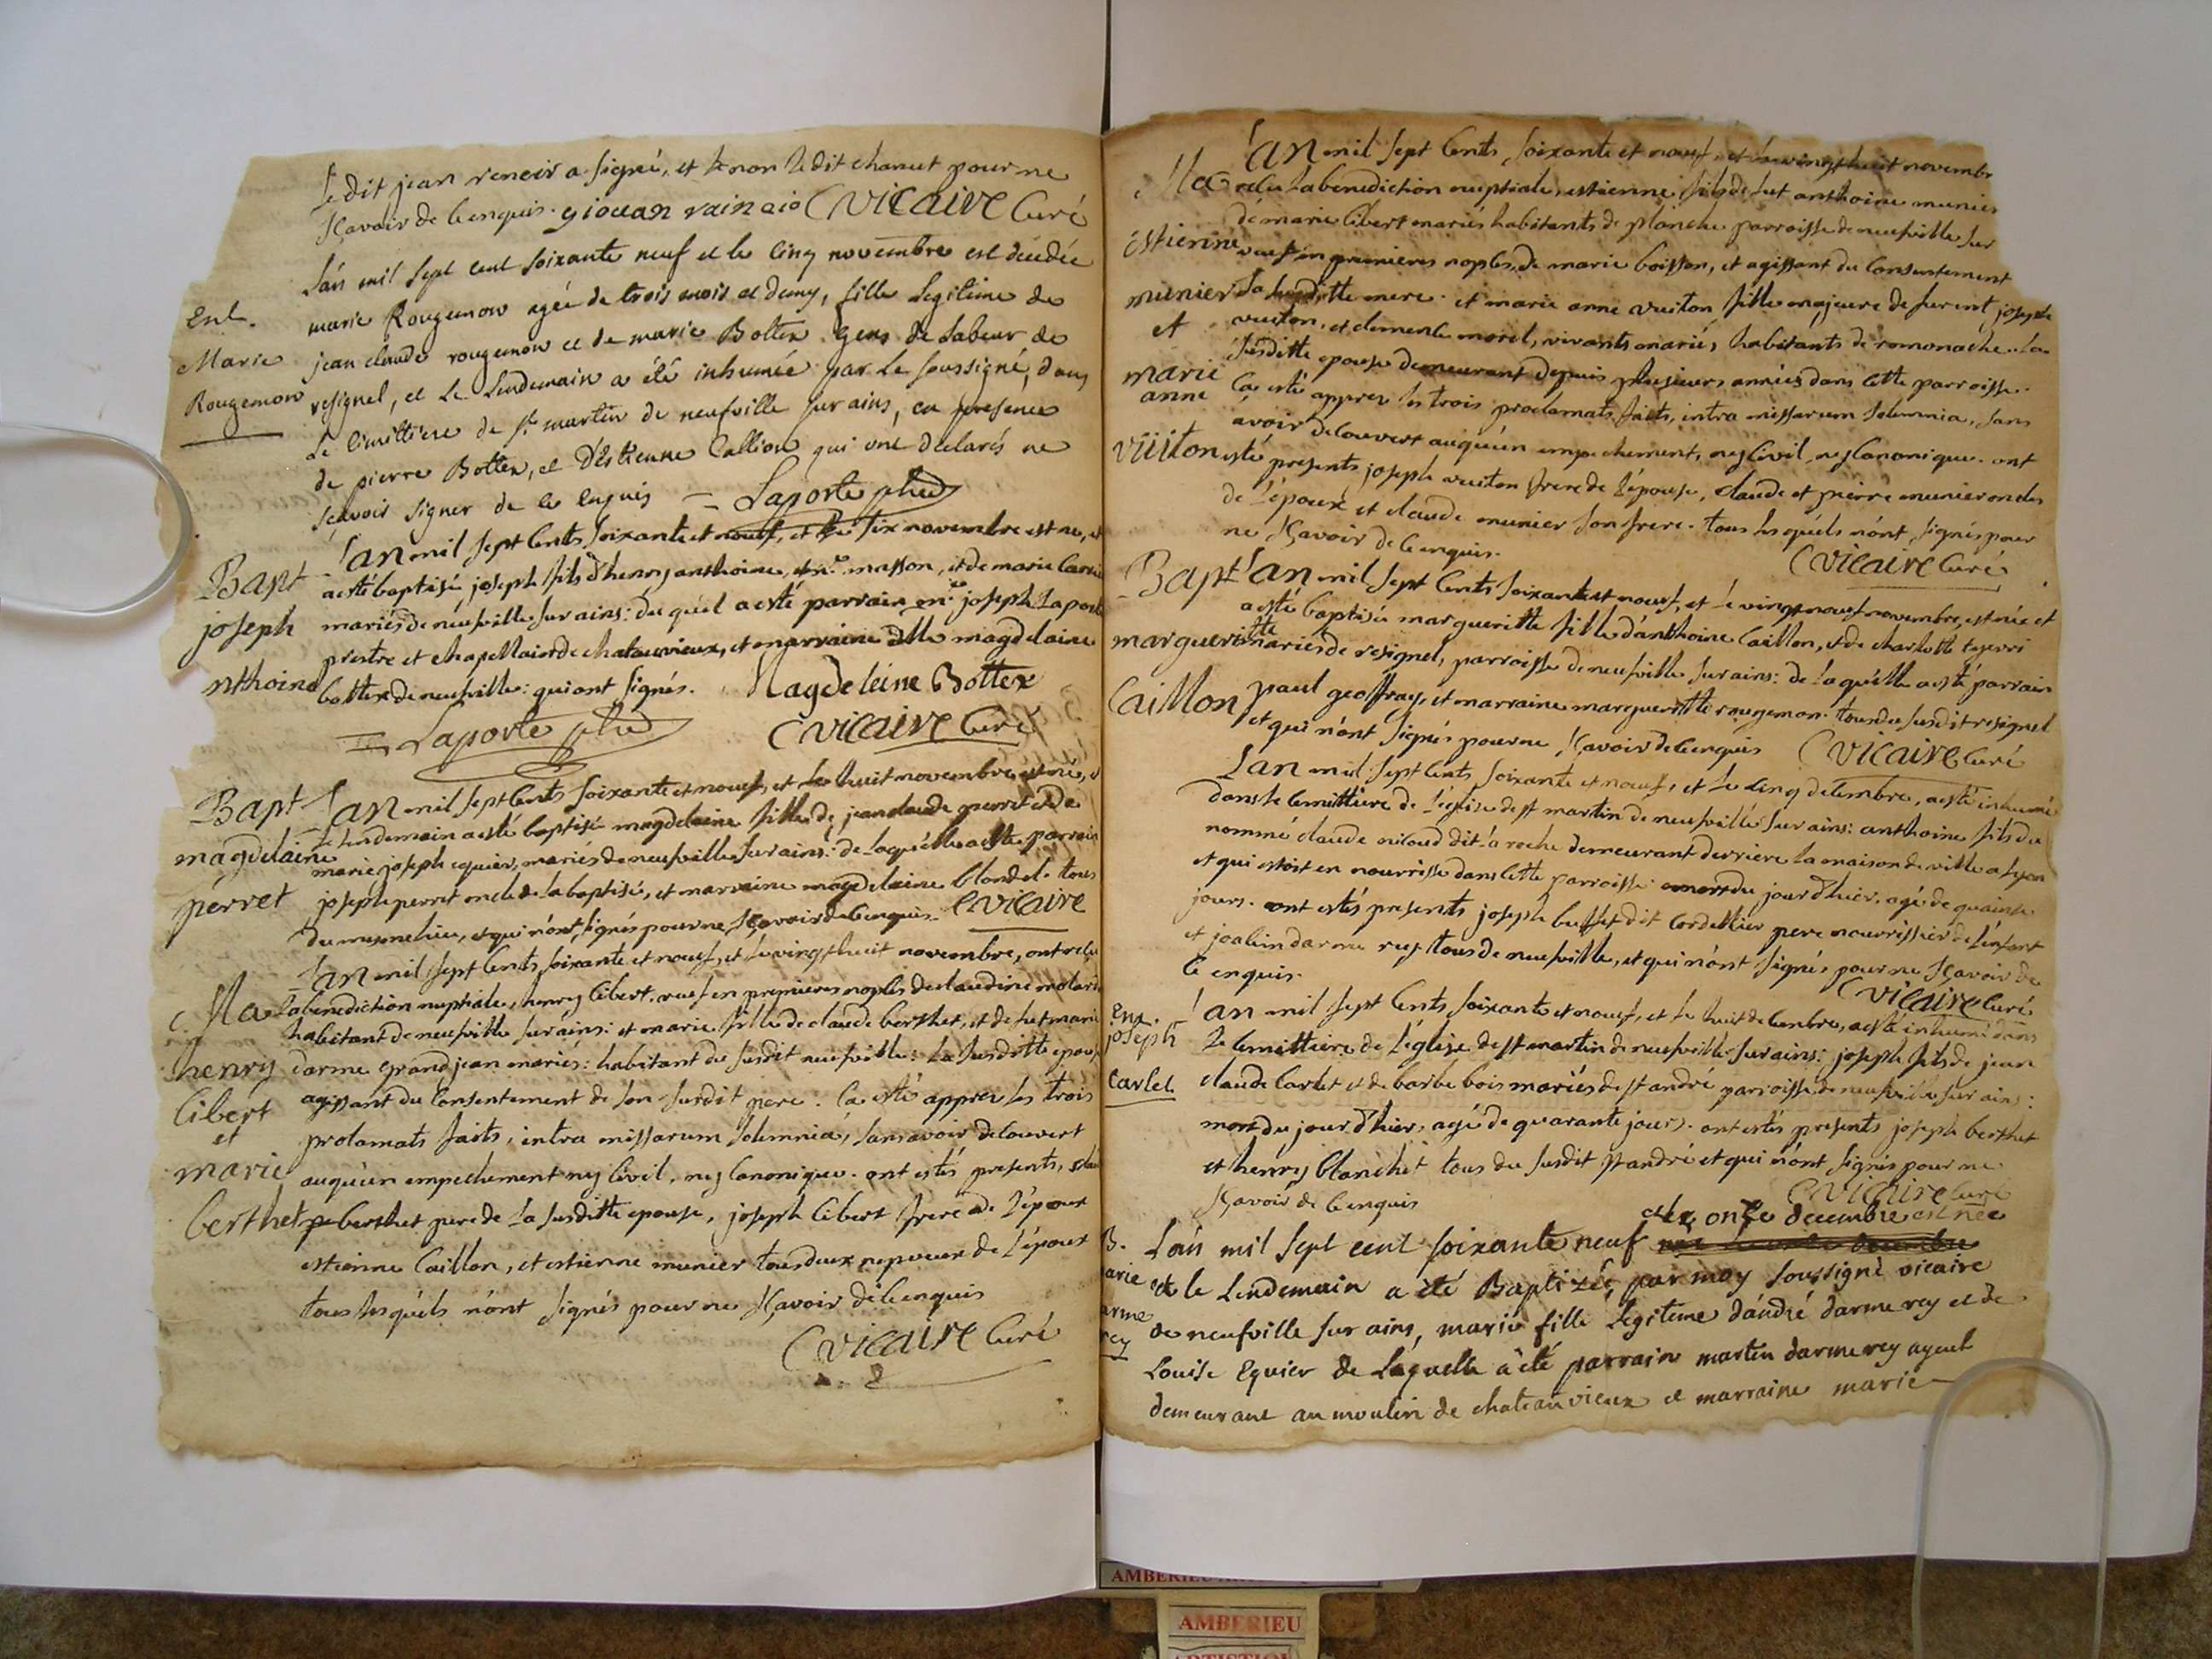 Le dit jean renoir a signé, et non le dit chanut pour ne
sçavoir de ce enquis. giouan rainoio C Vicaire Curé
L'an mil sept cent soixante neuf et le cinq novembre est décédée
Enl. Marie Rougemon
marie Rougemon agée de trois mois et demy, fille legitime de
jean claude rougemon et de marie Bottex gens de labeur de
resignel, et le lendemain a été inhumée par le soussigné, dans
le cimittiere de st. martin de neufville sur ains, en presence
de pierre Bottex, et d'Estienne Callion qui ont declarés ne
sçavoir signer de ce enquis = Laporte ptre
Bapt joseph nthoine
L'an mil sept cents soixante et neuf, et le six novembre est né, et
a esté baptisé joseph fils d'henry anthoine, me. masson, et de marie
mariés de neufville sur ains: du quel a esté parrain mre. joseph Laporte
prestre et chapellain de chateauvieux, et marraine dlle magdelaine
bottex de neufville: qui ont signés. Magdeleine Bottex
= Laporte ptre C Vicaire Curé
Bapt magdelaine perret
L'an mil sept cents soixante et neuf, et le huit novembre est née, et
le lendemain a esté baptisée magdelaine fille de jean claude perret et de
marie joseph equier, mariés de neufville sur ains: de laquelle a esté parrain
joseph perret oncle de la baptisée, et marraine magdelaine blondel. tous
du mesme lieu, et qui n'ont signés pour ne sçavoir de ce enquis. C Vicaire
Ma henry Cibert et marie berthet
L'an mil sept cents soixante et neuf, et le vingt huit novembre, ont reçu
la benediction nuptiale, henry Cibert, veuf en premieres nopces de claudine
habitant de neufville sur ains: et marie fille de claude berthet, et de fut marie
darme grand jean mariés: habitant du susdit neufville: la susditte epouse
agissant du consentement de son susdit pere. Ca esté appres les trois
proclamats faits, intra missarum solemnia, sans avoir decouvert
auqu'un empechement ny civil, ny canonique. ont estés presents,
berthet pere de la susditte epouse, joseph Cibert frere de l'époux
estienne Caillon, et estienne munier tous deux nepveux de l'époux
tous lesquels n'ont signés pour ne sçavoir de ce enquis
C Vicaire Curé
Ma estienne munier et marie anne vuiton
L'an mil sept cents soixante et neuf, et le vingt huit novembr
reçu la benediction nuptiale, estienne fils de fut anthoine munier
de marie Cibert mariés habitants de planche parroisse de neufville sur
veuf en premieres nopces de marie boisson, et agissant du consentement
sa susditte mere. et marie anne vuiton fille majeure de furent joseph
vuiton, et clemence morel, vivants mariés, habitants de romonache. la
susditte epouse demeurant depuis plusieurs années dans cette parroisse.
Ca esté appres les trois proclamats faits, intra missarum solemnia, sans
avoir decouvert auqu'un empechement, ny civil, ny canonique. ont
esté presents joseph vuiton frere de l'épouse, claude et pierre munier oncles
de l'époux et claude munier son frere. tous lesquels n'ont signés pour
ne sçavoir de ce enquis.
C Vicaire Curé
Bapt margueritte Caillon
L'an mil sept cents soixante et neuf, et le vingt neuf novembre, est née et
a esté baptisée margueritte fille d'anthoine Caillon, et de charlotte
mariés de resignel, parroisse de neufville sur ains: de laquelle a esté parrain
paul geoffray, et marraine margueritte rougemon. tous du susdit resignel
et qui n'ont signés pour ne sçavoir de ce enquis C Vicaire Curé
L'an mil sept cents soixante et neuf, et le cinq decembre, a esté inhumé
dans le cemittiere de l'église de st martin de neufville sur ains: anthoine fils du
nommé claude dit la roche demeurant derriere la maison de ville a lyon
et qui estoit en nourrisse dans cette parroisse. mort du jour d'hier, agé de quainse
jours. ont estés presents joseph buffet dit cordellier pere nourrissier de l'enfant
et joachin darme rey tous de neufville, et qui n'ont signés pour ne sçavoir de
ce enquis.
C Vicaire Curé
Ent. joseph Carlet
L'an mil sept cents soixante et neuf, et le huit decembre, a esté inhumé dans
le cemittiere de l'église de st martin de neufville sur ains: joseph fils de jean
claude Carlet et de barbe bois mariés de st andré parroisse de neufville sur ains:
mort du jour d'hier, agé de quarante jours. ont estés presents joseph berthet
et henry blanchet tous du susdit st andré et qui n'ont signés pour ne
sçavoir de ce enquis C Vicaire Curé
et le onze decembre est née
B. arie arme rey
L'an mil sept cent soixante neuf
et le lendemain a été Baptizée, par moy soussigné vicaire
de neufville sur ains, marie fille legitime d'andré darme rey et de
Louise Equier de laquelle a été parrain martin darme rey ayeul
demeurant au moulin de chateau vieux et marraine marie
AMBERIEU
AMBERIEU